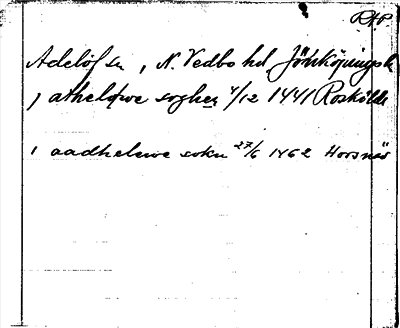 RAP
Adelöf sn, N. Vedbo hd Jönköpings l.
j atheløwe soghen 4/12 1441 Roskilde
i aadheløwe sokn 27/6 1462 Horsnäs